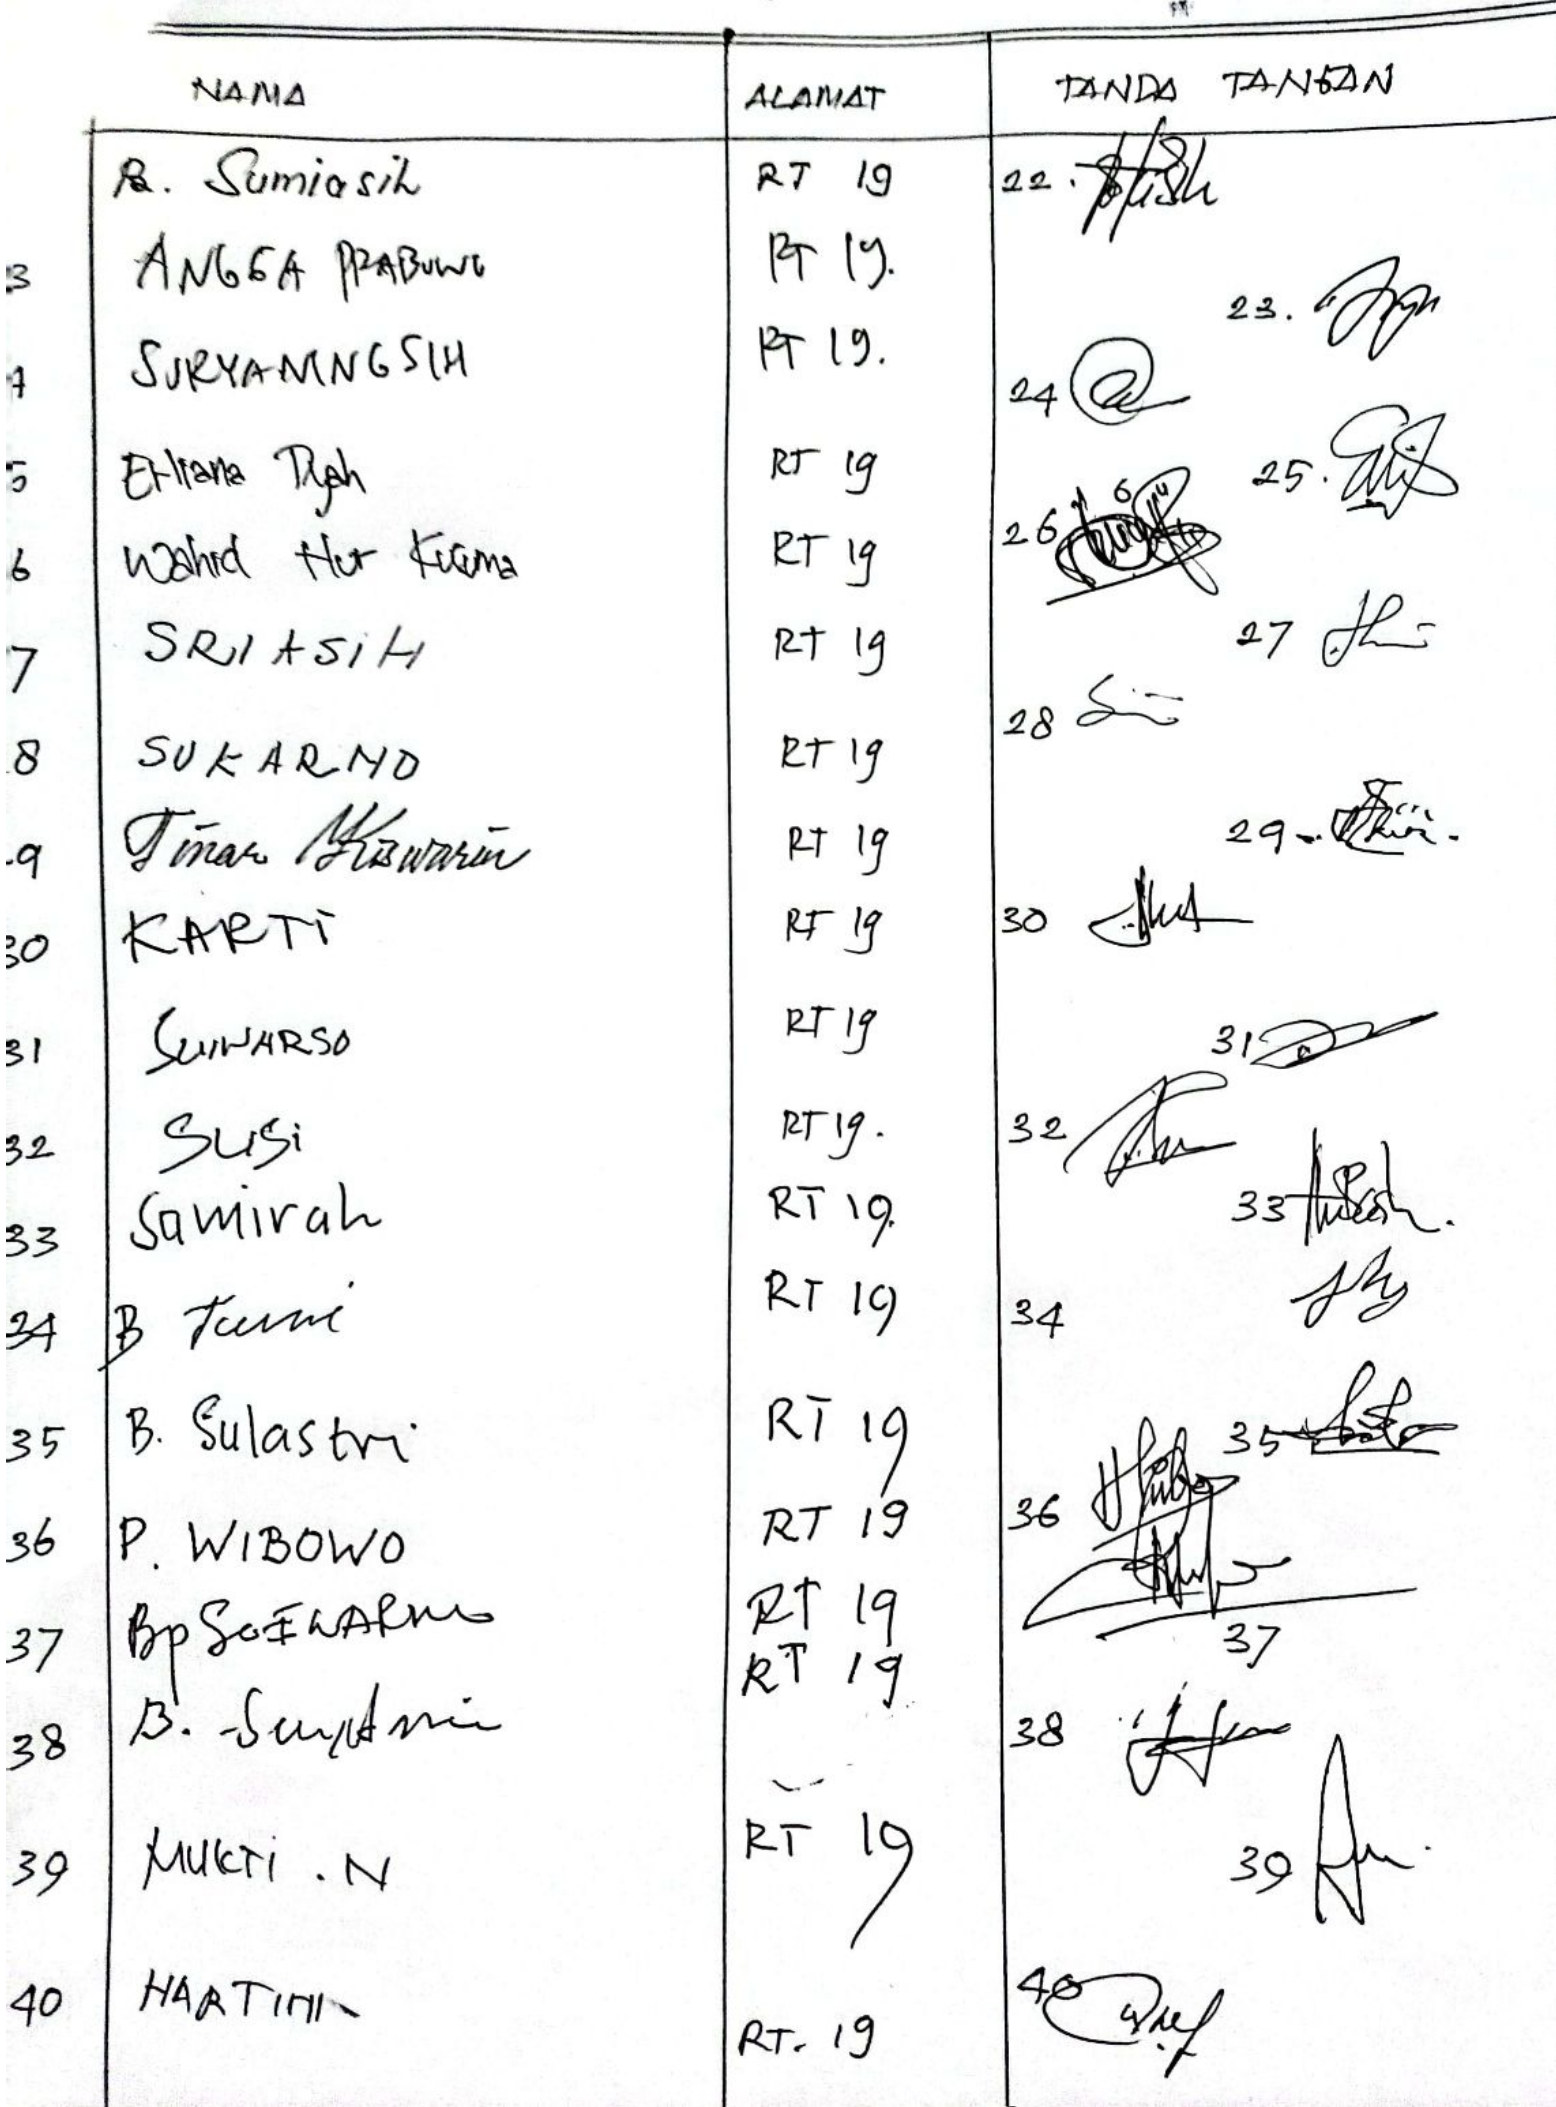 NAMA ALAMAT TANDA TANGAN
B. Sumiasih RT 19 22.
3 ANGGA PRABOWO RT 19. 23.
4 SURYANINGSIH RT 19. 24
5 Erliana Dyah RT 19 25.
6 Wahid Nur Kusuma RT 19 26
7 SRI ASIH RT 19 27
8 SUKARNO RT 19 28
9 RT 19 29
30 KARTI RT 19 30
31 SUWARSO RT 19 31
32 SUSi RT 19. 32
33 Samirah RT 19. 33
34 B RT 19 34
35 B. Sulastri RT 19 35
36 P. WIBOWO RT 19 36
37 Bp RT 19 37
38 B. RT 19 38
39 MUKTi . N RT 19 39
40 HARTINI RT. 19 40